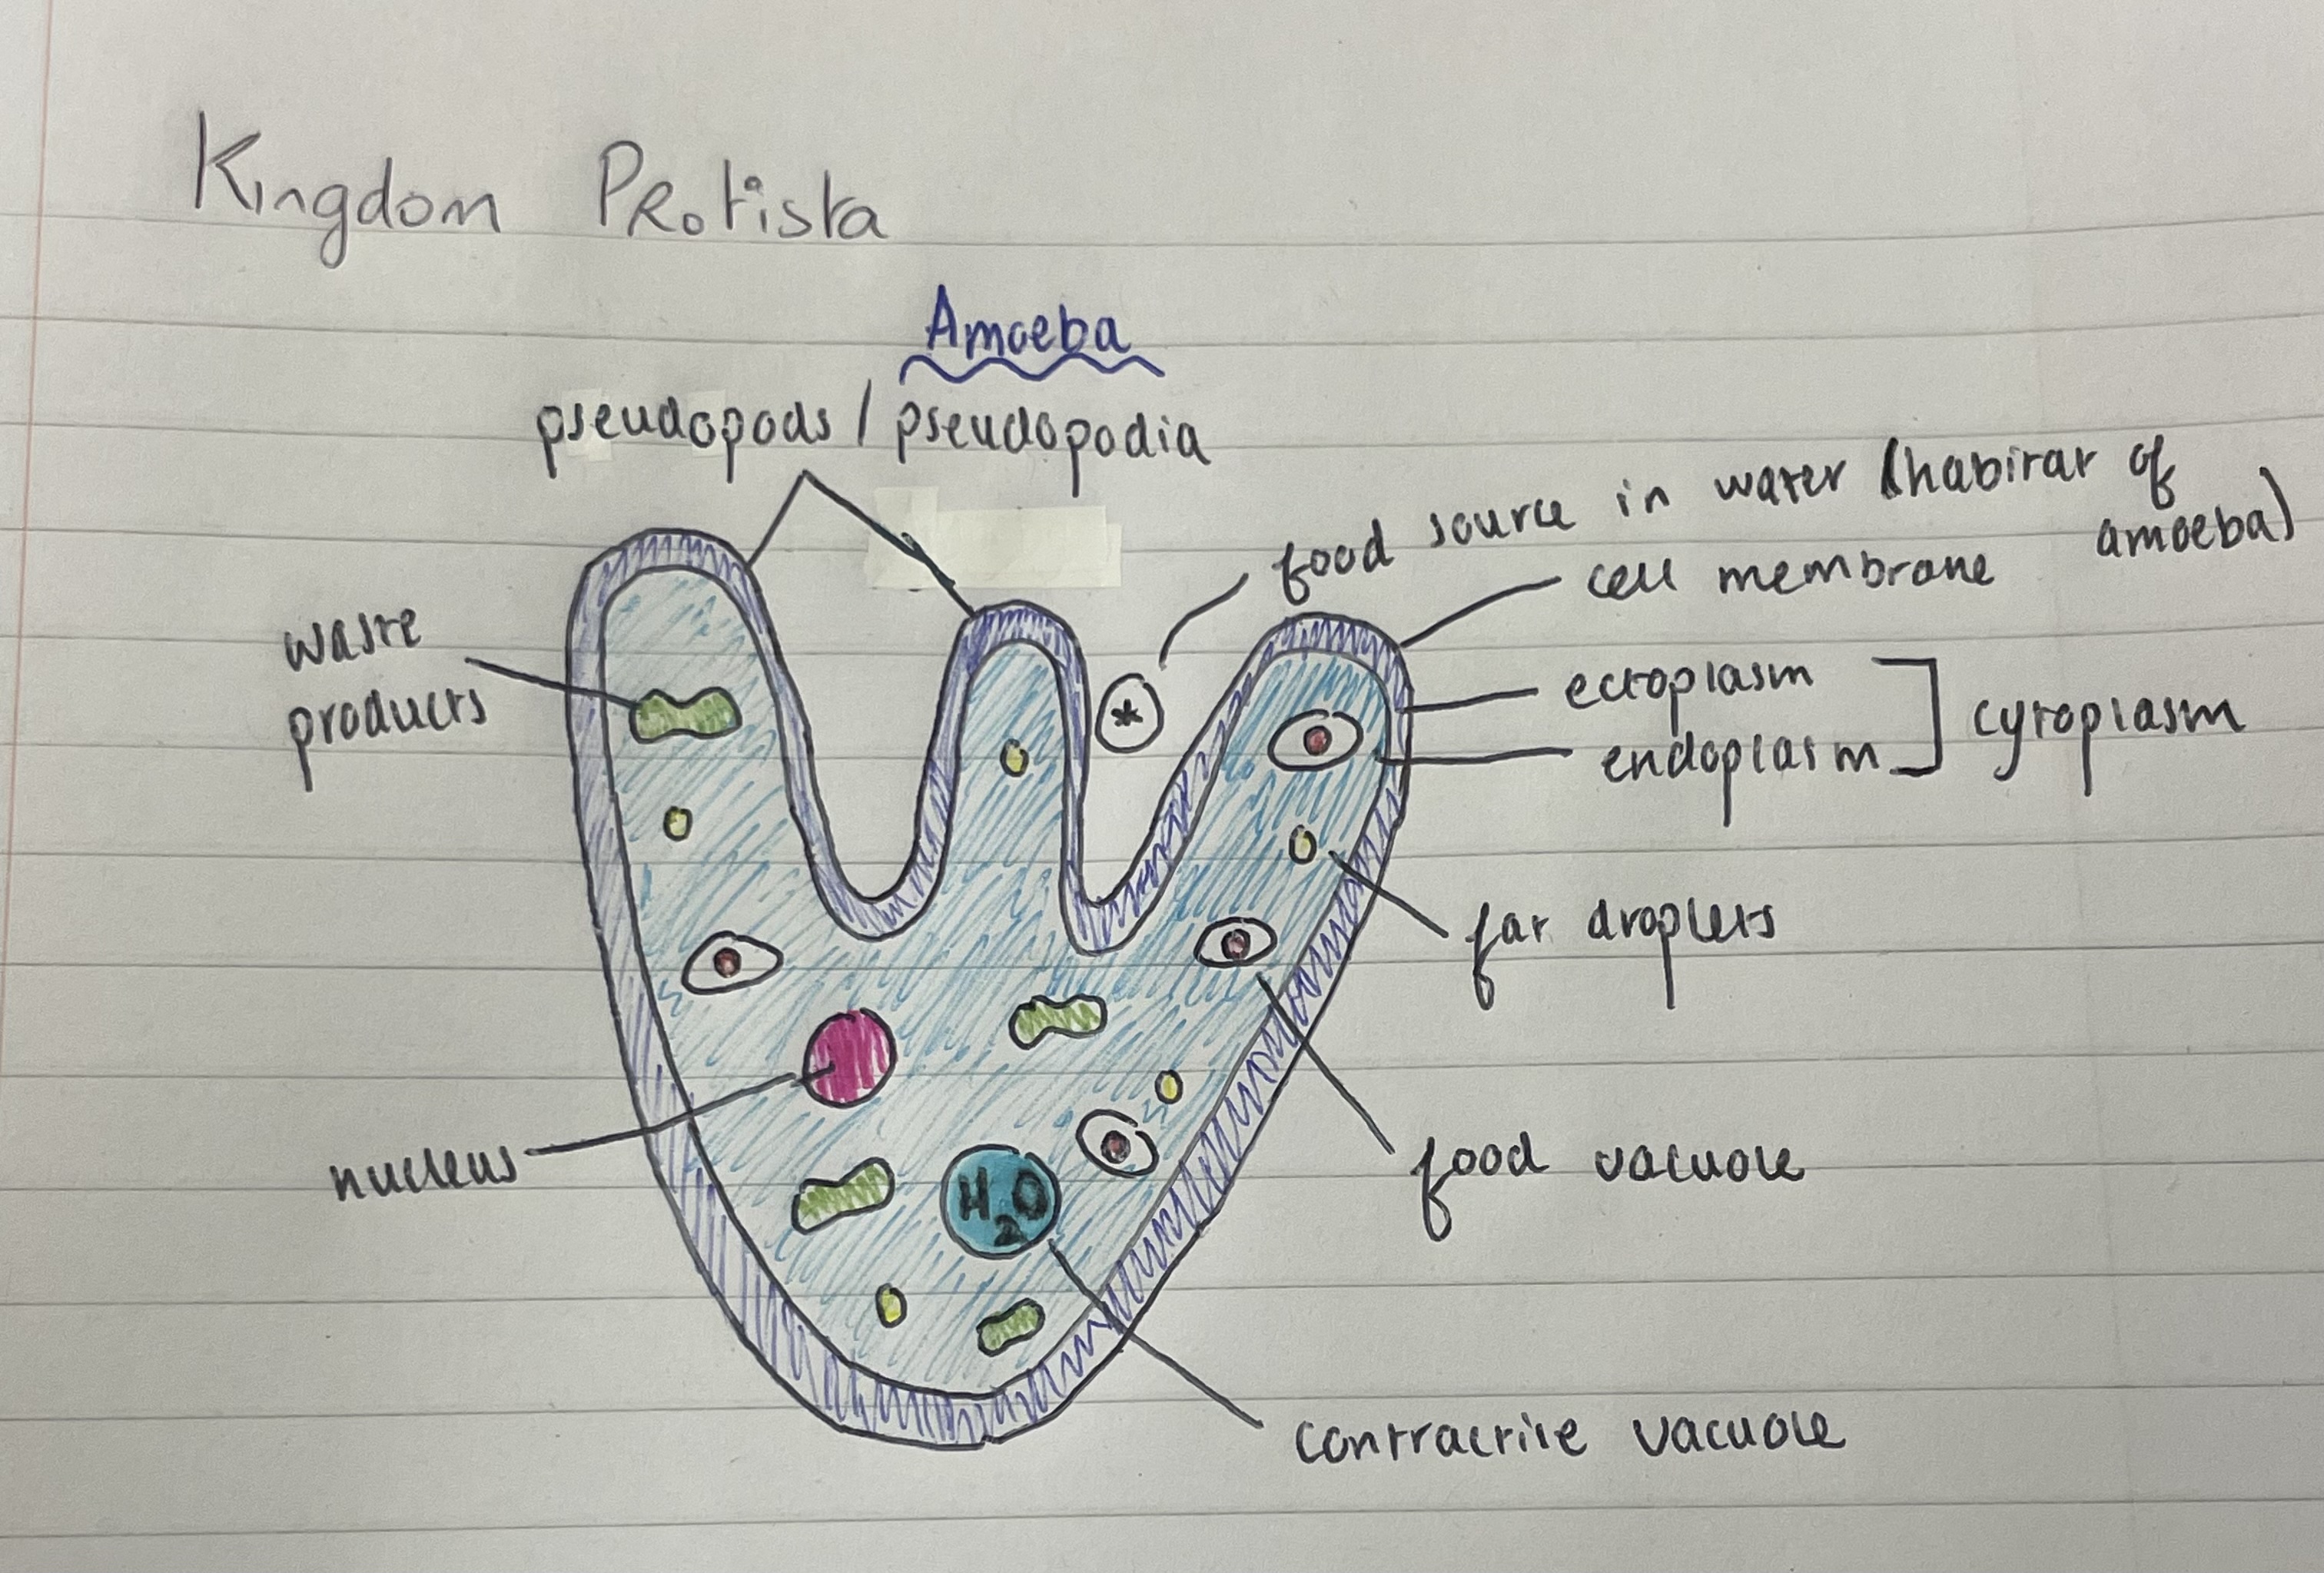 Kingdom Protista
Amoeba
pseudopods / pseudopodia
food source in water (habitat of
amoeba)
cell membrane
waste
products
ectoplasm
endoplasm
cytoplasm
*
fat droplets
nucleus
food vacuole
H2O
contractile vacuole